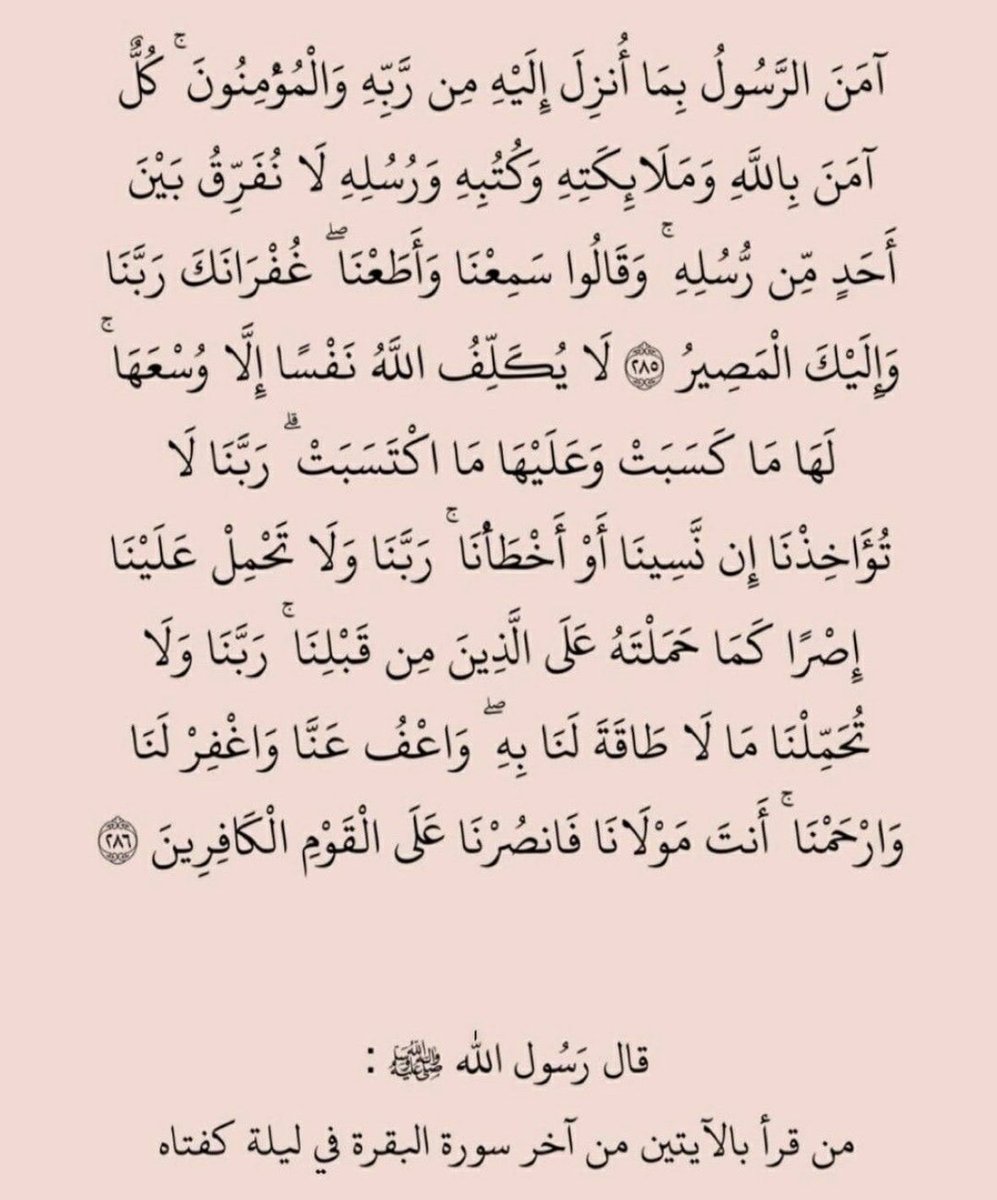 آمَنَ الرَّسُولُ بِمَا أُنزِلَ إِلَيْهِ مِن رَّبِّهِ وَالْمُؤْمِنُونَ ۚ كُلٌّ
آمَنَ بِاللَّهِ وَمَلَائِكَتِهِ وَكُتُبِهِ وَرُسُلِهِ لَا نُفَرِّقُ بَيْنَ
أَحَدٍ مِّن رُّسُلِهِ ۚ وَقَالُوا سَمِعْنَا وَأَطَعْنَا ۖ غُفْرَانَكَ رَبَّنَا
وَإِلَيْكَ الْمَصِيرُ ﴿٢٨٥﴾ لَا يُكَلِّفُ اللَّهُ نَفْسًا إِلَّا وُسْعَهَا ۚ
لَهَا مَا كَسَبَتْ وَعَلَيْهَا مَا اكْتَسَبَتْ ۗ رَبَّنَا لَا
تُؤَاخِذْنَا إِن نَّسِينَا أَوْ أَخْطَأْنَا ۚ رَبَّنَا وَلَا تَحْمِلْ عَلَيْنَا
إِصْرًا كَمَا حَمَلْتَهُ عَلَى الَّذِينَ مِن قَبْلِنَا ۚ رَبَّنَا وَلَا
تُحَمِّلْنَا مَا لَا طَاقَةَ لَنَا بِهِ ۖ وَاعْفُ عَنَّا وَاغْفِرْ لَنَا
وَارْحَمْنَا ۚ أَنتَ مَوْلَانَا فَانصُرْنَا عَلَى الْقَوْمِ الْكَافِرِينَ ﴿٢٨٦﴾
قال رَسُول الله ﷺ :
من قرأ بالآيتين من آخر سورة البقرة في ليلة كفتاه